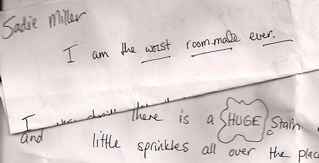 Sadie Miller
I am the worst room.mate ever.
I there is a HUGE stain
and little sprinkles all over the place